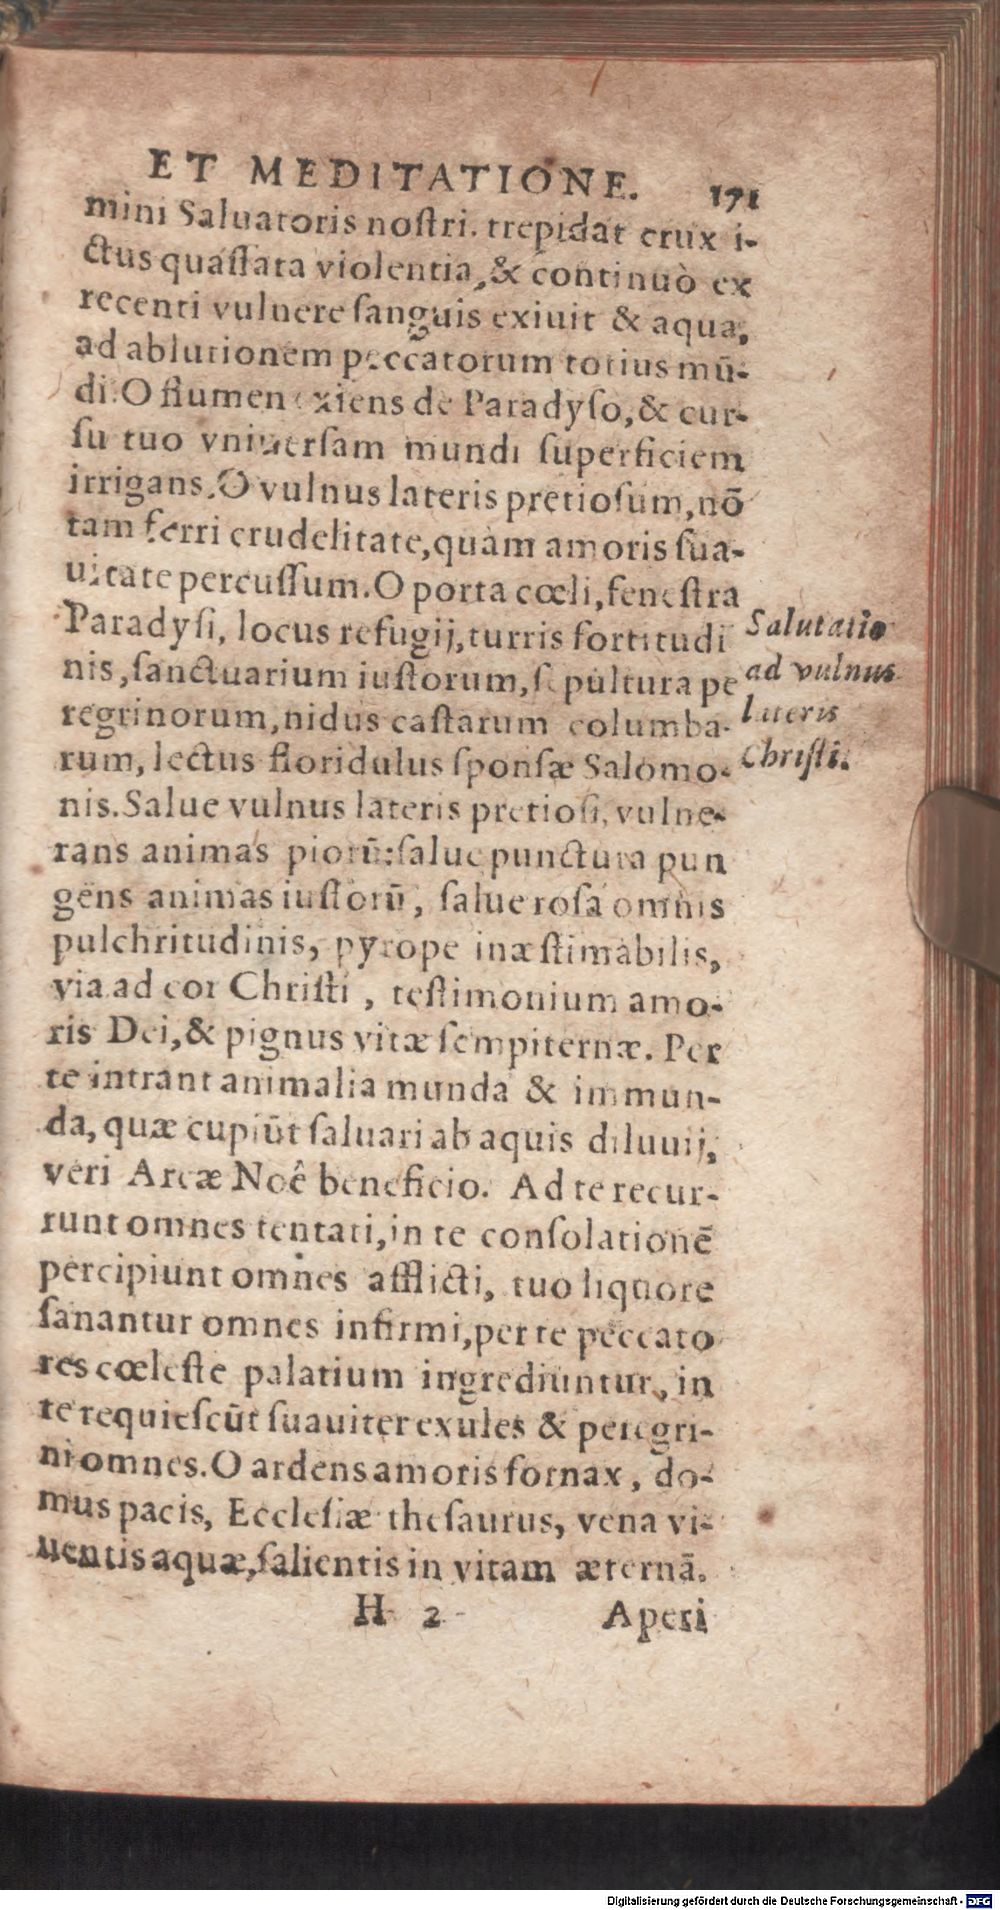 ET MEDITATIONE. 171
mini Saluatoris noſtri. trepidat crux i-
ctus quaſſata violentia, & continuò ex
recenti vulnere ſanguis exiuit & aqua,
ad ablutionem peccatorum totius mū-
di. O flumen exiens de Paradyſo, & cur-
ſu tuo vniuerſam mundi superficiem
irrigans. O vulnus lateris pretioſum, nō
tam ferri crudelitate, quàm amoris ſua-
uitate percuſſum. O porta cœli, feneſtra
Paradyſi, locus refugij, turris fortitudi
nis, ſanctuarium iuſtorum, ſepultura pe
regrinorum, nidus caſtarum columba-
rum, lectus floridulus ſponſæ Salomo-
nis. Salue vulnus lateris pretioſi, vulne-
rans animas piorū: ſalue punctura pun
gens animas iuſtorū, ſalue roſa omnis
pulchritudinis, pyrope inæſtimabilis,
via ad cor Chriſti, teſtimonium amo-
ris Dei, & pignus vitæ ſempiternæ. Per
te intrant animalia munda & immun-
da, quæ cupiūt ſaluari ab aquis diluuij,
veri Arcæ Noê beneficio. Ad te recur-
runt omnes tentati, in te conſolationē
percipiunt omnes afflicti, tuo liquore
ſanantur omnes infirmi, per te peccato
res cœleſte palatium ingrediuntur, in
te requieſcūt ſuauiter exules & peregri-
ni omnes. O ardens amoris fornax, do-
mus pacis, Eccleſiæ theſaurus, vena vi-
uentis aquæ, ſalientis in vitam æternā.
H 2 Aperi
Salutatio
ad vulnus
lateris
Chriſti.
Digitalisierung gefördert durch die Deutsche Forschungsgemeinschaft - DFG